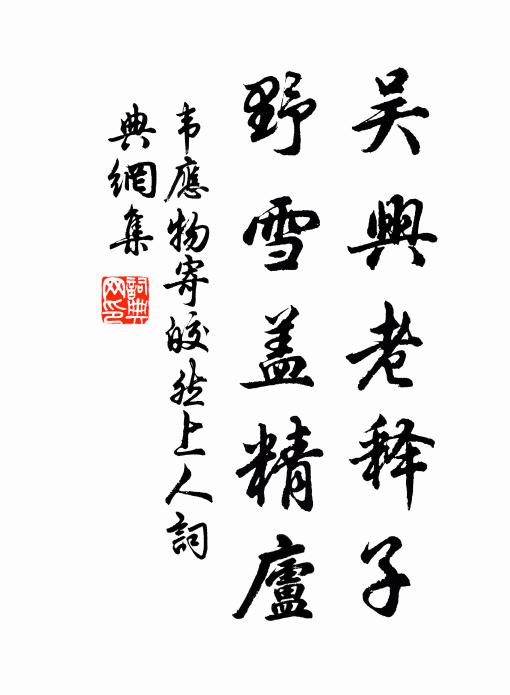 吴興老释子
野雪盖精廬
韦應物寄皎然上人詞
典網集
詞典网印